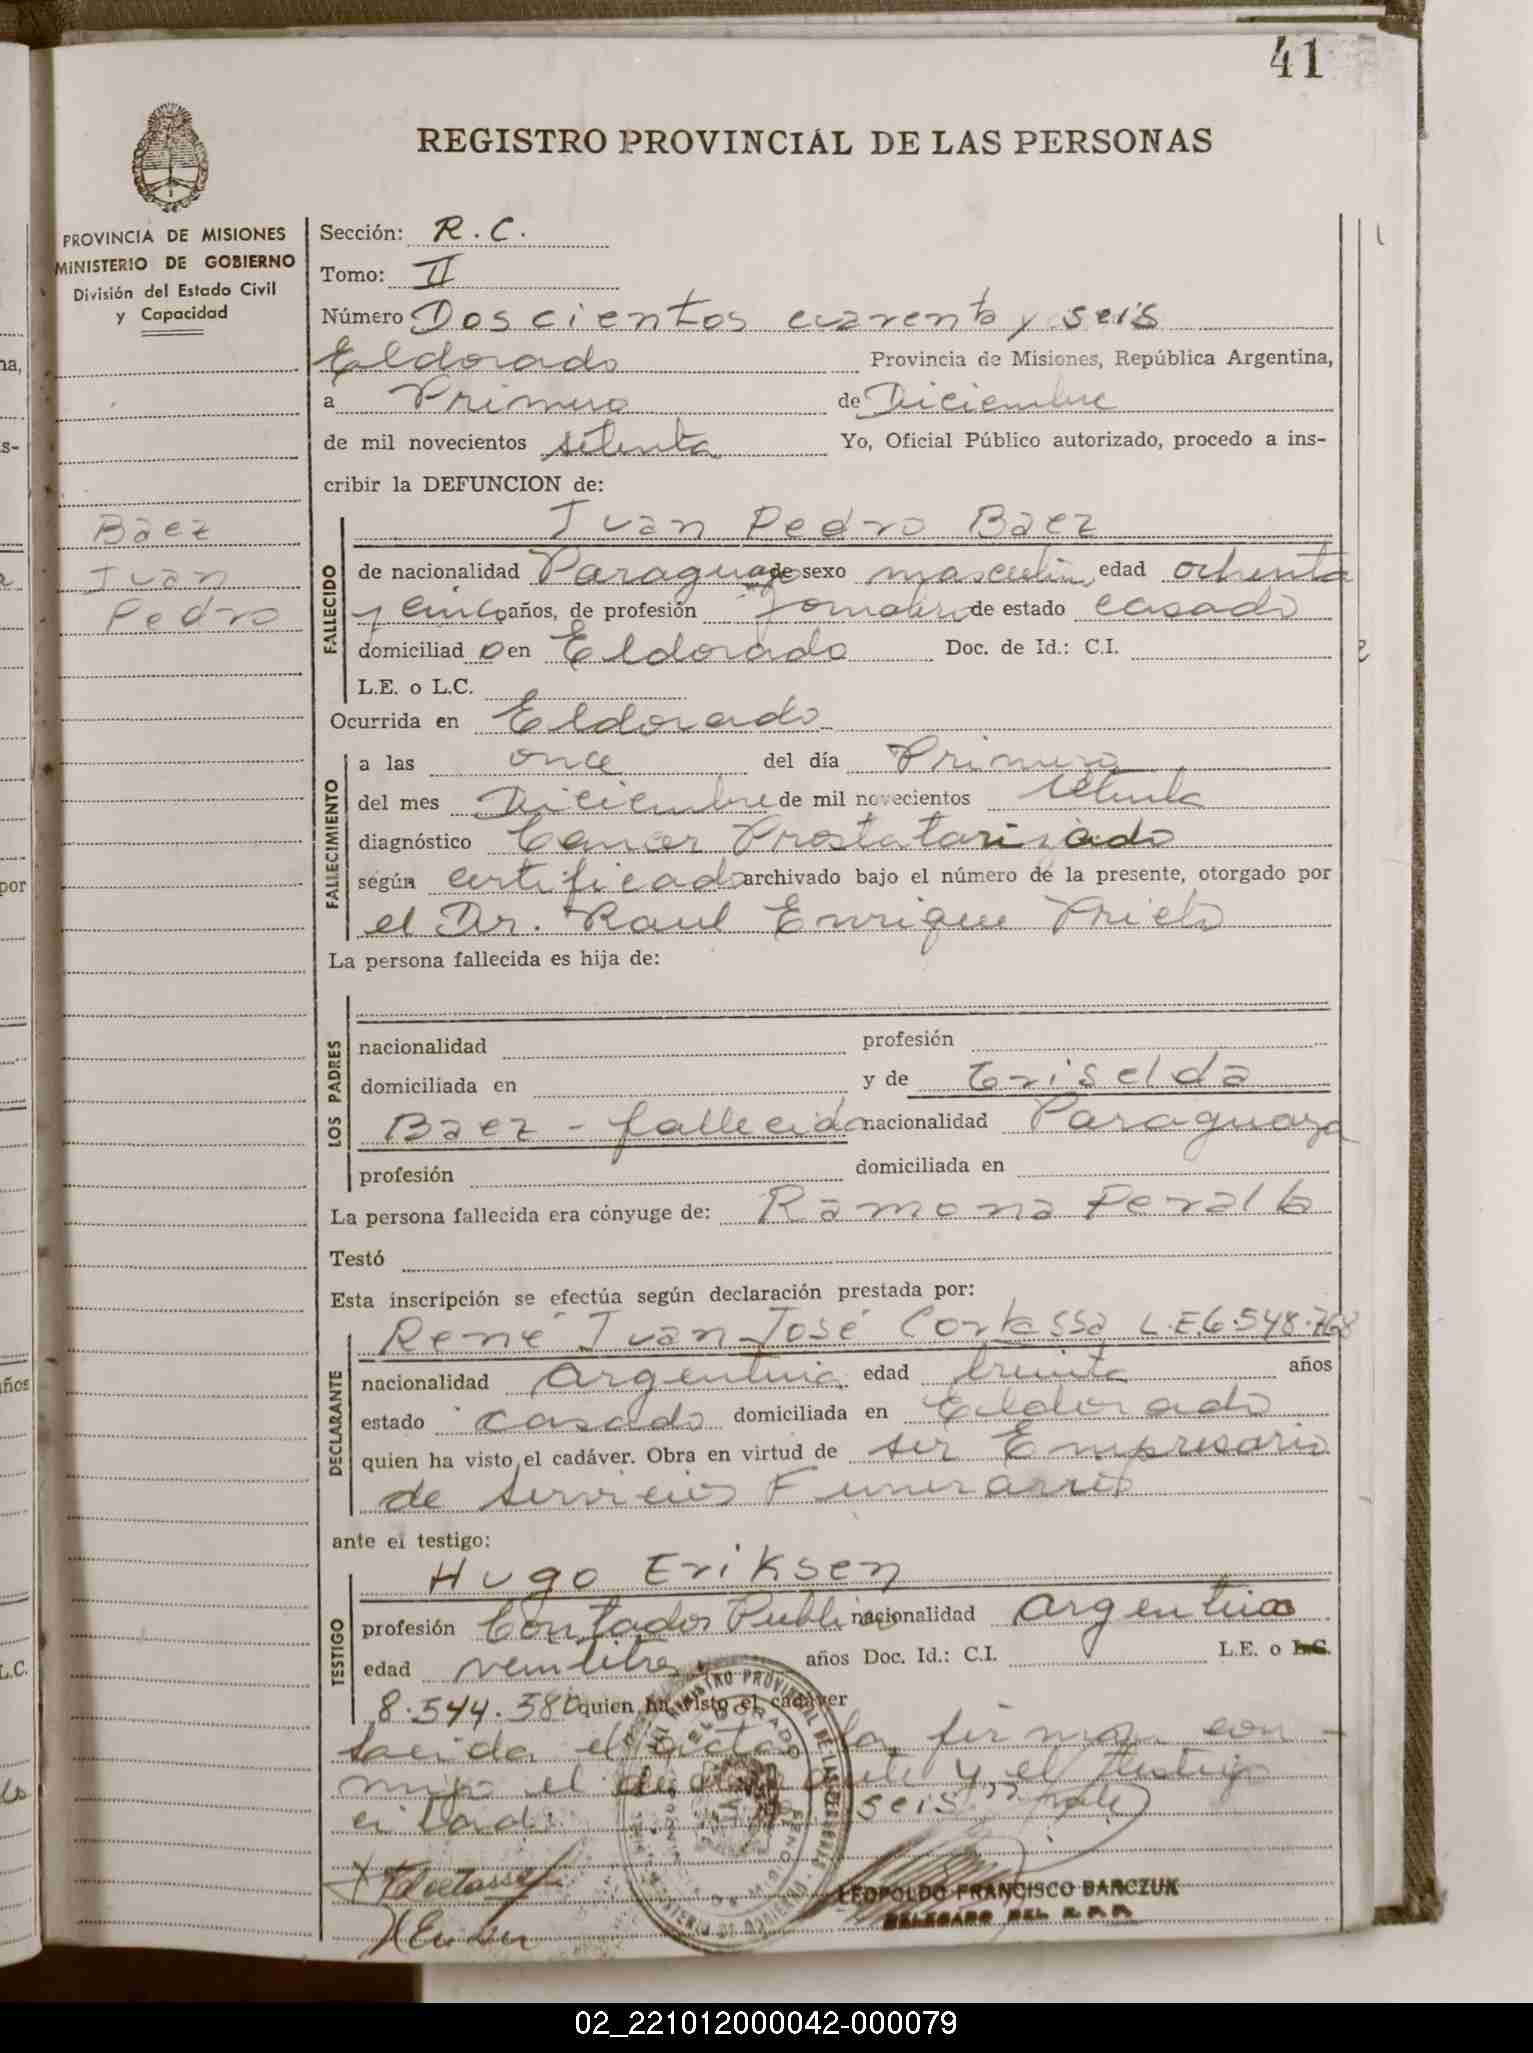 41
REGISTRO PROVINCIAL DE LAS PERSONAS
PROVINCIA DE MISIONES
MINISTERIO DE GOBIERNO
División del Estado Civil
y Capacidad
Baez
Juan
Pedro
Sección: R.C.
Tomo: II
Número Doscientos cuarenta y seis
Eldorado Provincia de Misiones, República Argentina,
a Primero de Diciembre
de mil novecientos setenta Yo, Oficial Público autorizado, procedo a ins-
cribir la DEFUNCION de:
Juan Pedro Baez
FALLECIDO
de nacionalidad Paraguaya de sexo masculino, edad ochenta
y cinco años, de profesión Jornalero de estado casado
domiciliado en Eldorado Doc. de Id.: C.I.
L.E. o L.C.
Ocurrida en Eldorado
FALLECIMIENTO
a las once del día Primero
del mes Diciembre de mil novecientos setenta
diagnóstico Cancer Prostatarizado
según certificado archivado bajo el número de la presente, otorgado por
el Dr. Raul Enrique Prieto
La persona fallecida es hija de:
LOS PADRES
nacionalidad profesión
domiciliada en y de Griselda
Baez - fallecida nacionalidad Paraguaya
profesión domiciliada en
La persona fallecida era cónyuge de: Ramona Peralta
Testó
Esta inscripción se efectúa según declaración prestada por:
René Juan José Cortassa L.E. 6.548.768
DECLARANTE
nacionalidad Argentina edad treinta años
estado casado domiciliada en Eldorado
quien ha visto el cadáver. Obra en virtud de ser Empresario
de Servicios Funerarios
ante el testigo:
Hugo Eriksen
TESTIGO
profesión Contador Publico nacionalidad Argentina
edad veintitres años Doc. Id.: C.I. L.E. o L.C.
8.544.580 quien ha visto el cadáver
Leida el acta la firman con-
migo el declarante y el testigo
citado. seis" vale
LEOPOLDO FRANCISCO BARCZUK
DELEGADO DEL R.P.P.
02_221012000042-000079